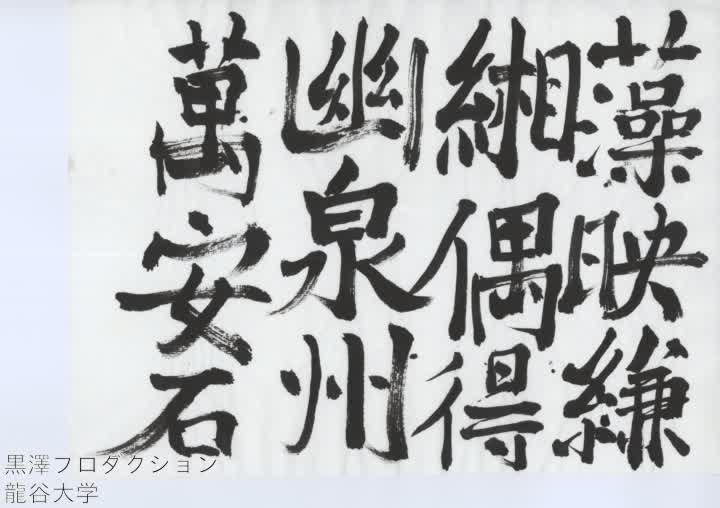 藻映縑
緗偶得
幽泉州
萬安石
黒澤プロダクション
龍谷大学